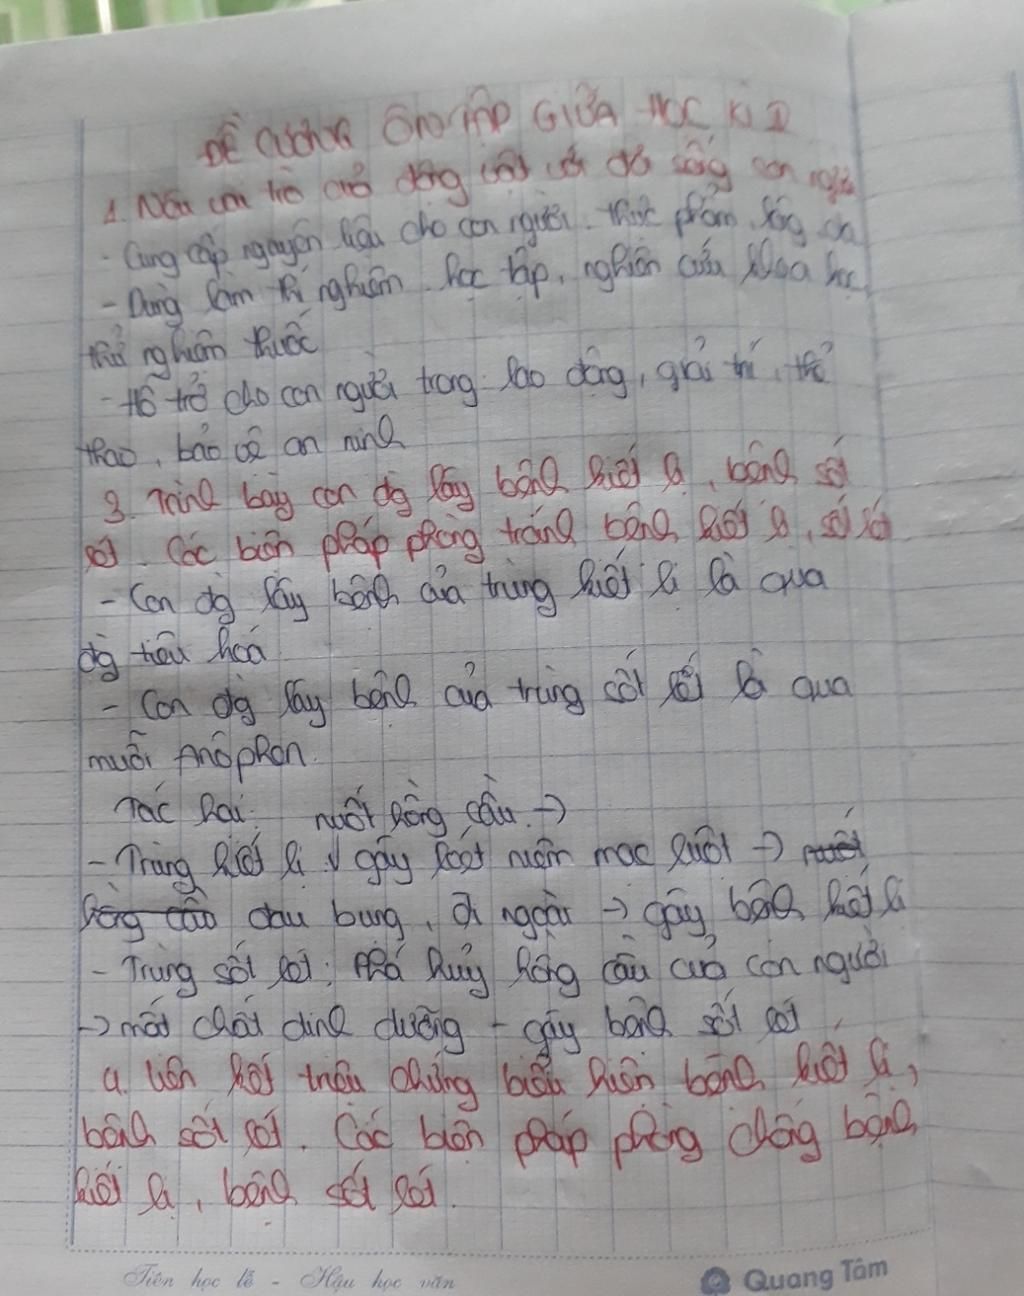 ĐỀ CƯƠNG ÔN TẬP GIỮA HỌC KÌ I
1. Nêu vai trò của động vật với đời sống con người
- Cung cấp nguyên liệu cho con người: thực phẩm, lông, da
- Dùng làm thí nghiệm: học tập, nghiên cứu khoa học,
thử nghiệm thuốc
- Hỗ trợ cho con người trong: lao động, giải trí, thể
thao, bảo vệ an ninh
3. Trình bày con đg lây bệnh kiết lị, bệnh sốt
rét. Các biện pháp phòng tránh bệnh kiết lị, sốt rét
- Con đg lây bệnh của trùng kiết lị là qua
đg tiêu hoá
- Con đg lây bệnh của trùng sốt rét là qua
muỗi Anôphen.
Tác hại: nuốt hồng cầu →
- Trùng kiết lị gây loét niêm mạc ruột →
đau bụng, đi ngoài → gây bệnh kiết lị
- Trùng sốt rét: Phá huỷ hồng cầu của con người
→ mất chất dinh dưỡng - gây bệnh sốt rét
4. Liên kết triệu chứng biểu hiện bệnh kiết lị,
bệnh sốt rét. Các biện pháp phòng chống bệnh
kiết lị, bệnh sốt rét.
Tiên học lễ - Hậu học văn
Quang Tâm